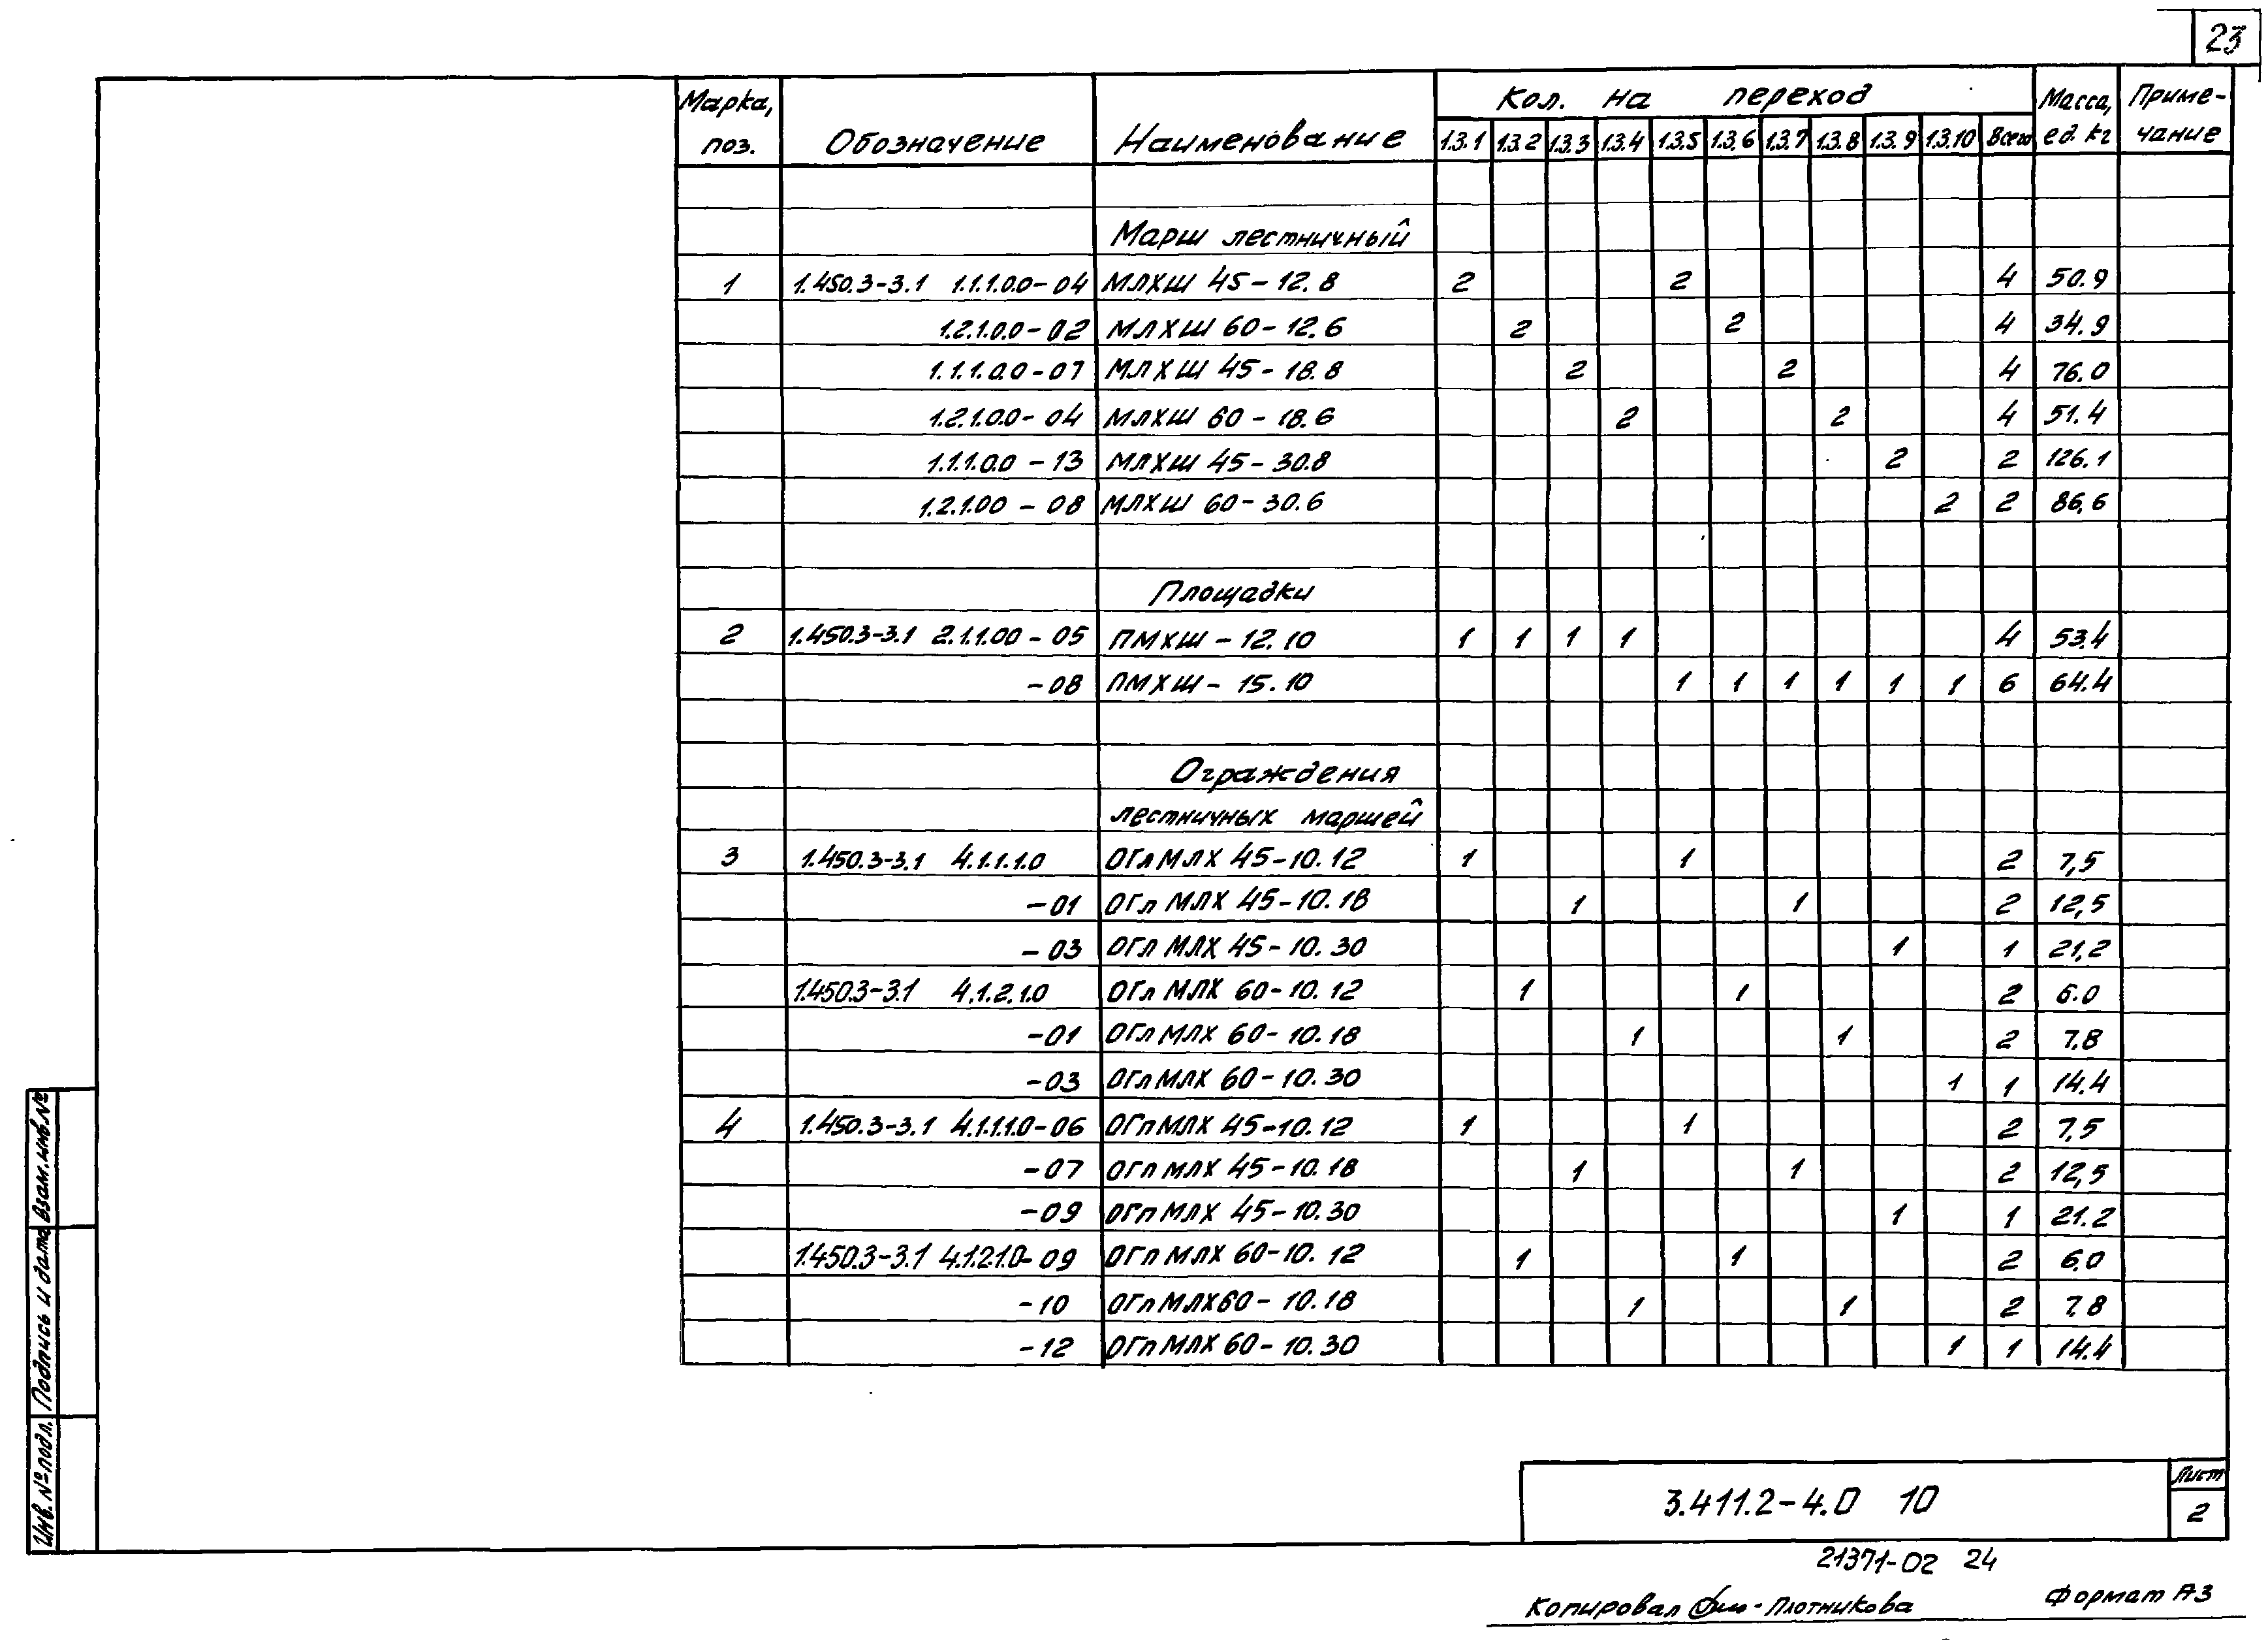 23
Марка, поз. Обозначение Наименование Кол. на переход Масса, ед. кг Приме- чание
1.3.1 1.3.2 1.3.3 1.3.4 1.3.5 1.3.6 1.3.7 1.3.8 1.3.9 1.3.10 Всего
Марш лестничный
1 1.450.3-3.1 1.1.1.0.0-04 МЛХШ 45-12.8 2 2 4 50.9
1.2.1.0.0-02 МЛХШ 60-12.6 2 2 4 34.9
1.1.1.0.0-07 МЛХШ 45-18.8 2 2 4 76.0
1.2.1.0.0-04 МЛХШ 60-18.6 2 2 4 51.4
1.1.1.0.0-13 МЛХШ 45-30.8 2 2 126.1
1.2.1.00-08 МЛХШ 60-30.6 2 2 86,6
Площадки
2 1.450.3-3.1 2.1.1.00-05 ПМХШ-12.10 1 1 1 1 4 53.4
-08 ПМХШ-15.10 1 1 1 1 1 1 6 64.4
Ограждения
лестничных маршей
3 1.450.3-3.1 4.1.1.1.0 ОГлМЛХ 45-10.12 1 1 2 7,5
-01 ОГл МЛХ 45-10.18 1 1 2 12,5
-03 ОГл МЛХ 45-10.30 1 1 21,2
1.450.3-3.1 4.1.2.1.0 ОГл МЛХ 60-10.12 1 1 2 6.0
-01 ОГл МЛХ 60-10.18 1 1 2 7.8
-03 ОГл МЛХ 60-10.30 1 1 14.4
4 1.450.3-3.1 4.1.1.1.0-06 ОГп МЛХ 45-10.12 1 1 2 7,5
-07 ОГп МЛХ 45-10.18 1 1 2 12,5
-09 ОГп МЛХ 45-10.30 1 1 21.2
1.450.3-3.1 4.1.2.1.0-09 ОГп МЛХ 60-10.12 1 1 2 6.0
-10 ОГп МЛХ60-10.18 1 1 2 7.8
-12 ОГп МЛХ 60-10.30 1 1 14.4
Взам.инв.№
Подпись и дата
Инв.№подл.
3.411.2-4.0 10
Лист
2
21371-02 24
Копировал Плотникова Формат А3